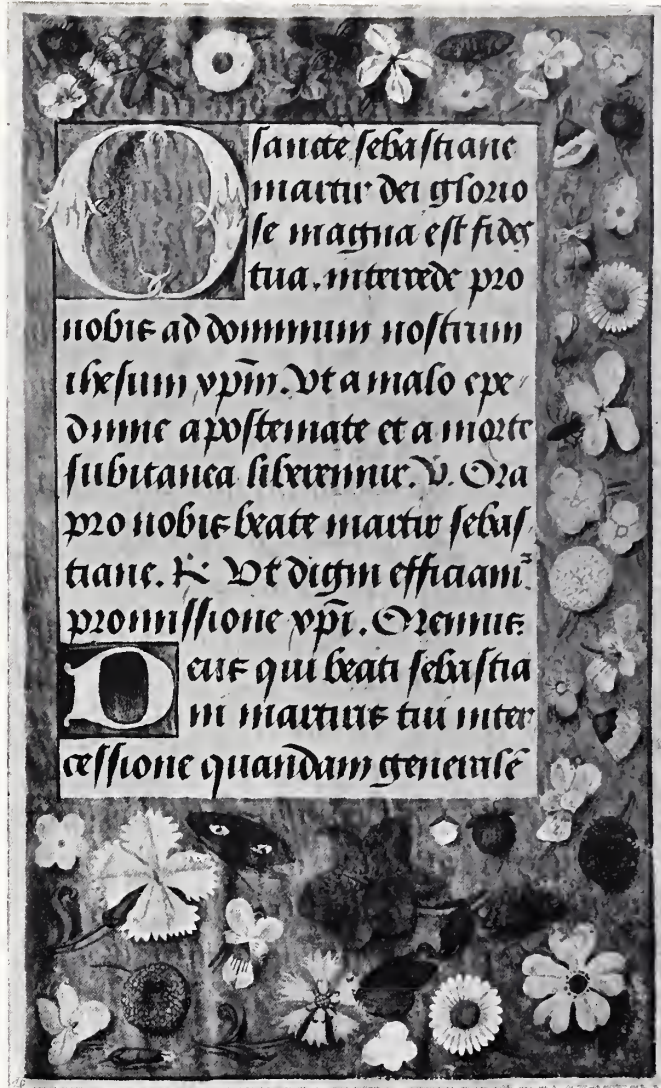 O sancte sebastiane
martir dei glorio
se magna est fides
tua. intercede pro
nobis ad dominum nostrum
ihesum xp̄m. Vt a malo epe
dimie apostemate et a morte
subitanea liberemur. V. Ora
pro nobis beate martir sebas
tiane. R Vt digni efficiam᷑.
promissione xp̄i. Oremus
Deus qui beati sebastia
ni martiris tui inter
cessione quandam generalē